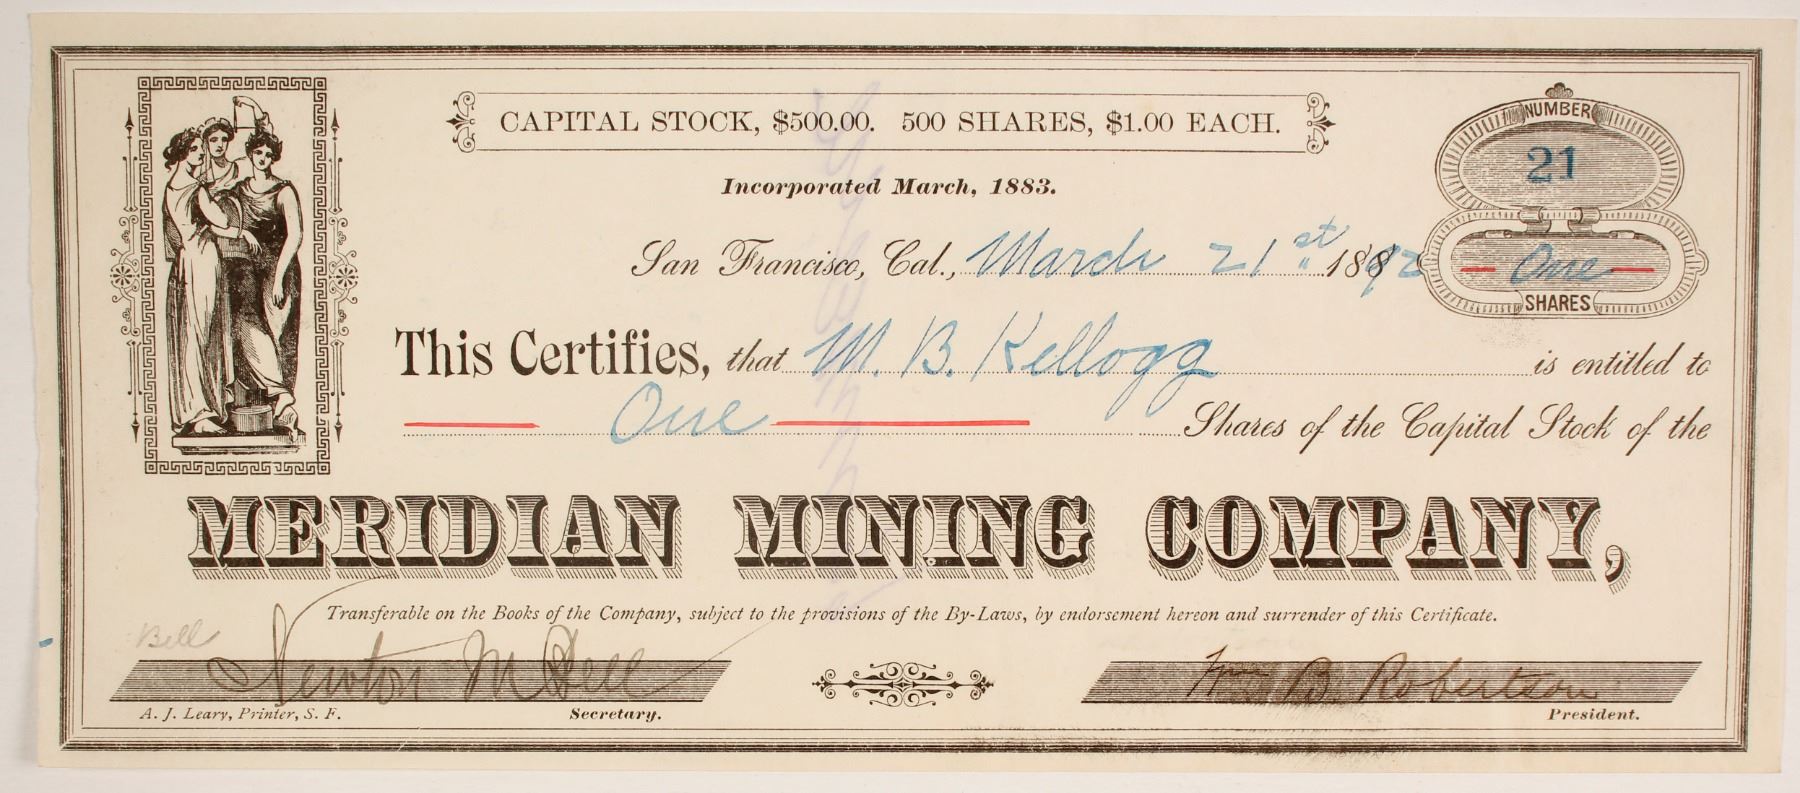 CAPITAL STOCK, $500.00. 500 SHARES, $1.00 EACH.
NUMBER
21
Incorporated March, 1883.
San Francisco, Cal., March 21st 1892
One
SHARES
This Certifies, that M. B. Kellogg is entitled to
One Shares of the Capital Stock of the
MERIDIAN MINING COMPANY,
Transferable on the Books of the Company, subject to the provisions of the By-Laws, by endorsement hereon and surrender of this Certificate.
Bell
Newton M Bell
B. Robertson
A. J. Leary, Printer, S. F.
Secretary.
President.